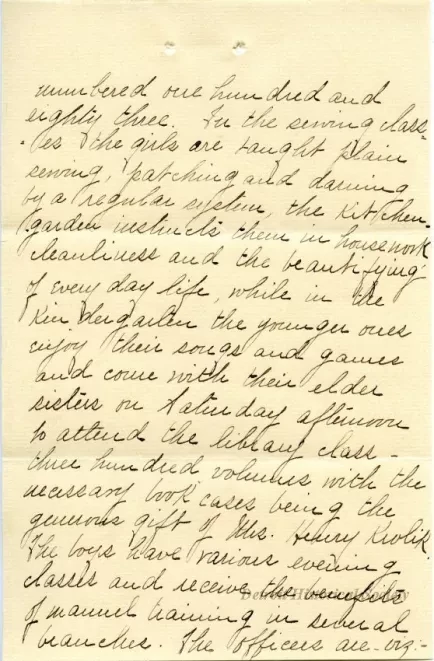 numbered one hundred and
eighty three. In the sewing class-
-es the girls are taught plain
sewing, patching and darning
by a regular system, the Kitchen-
garden instructs them in housework
cleanliness and the beautifying
of every day life, while in the
Kindergarten the younger ones
enjoy their songs and games
and come with their elder
sisters on Saturday afternoon
to attend the library class -
three hundred volumes with the
necessary book cases being the
generous gift of Mrs. Henry Krolik.
The boys have various evening
classes and receive the benefits
of manuel training in several
branches. The officers are - org:-